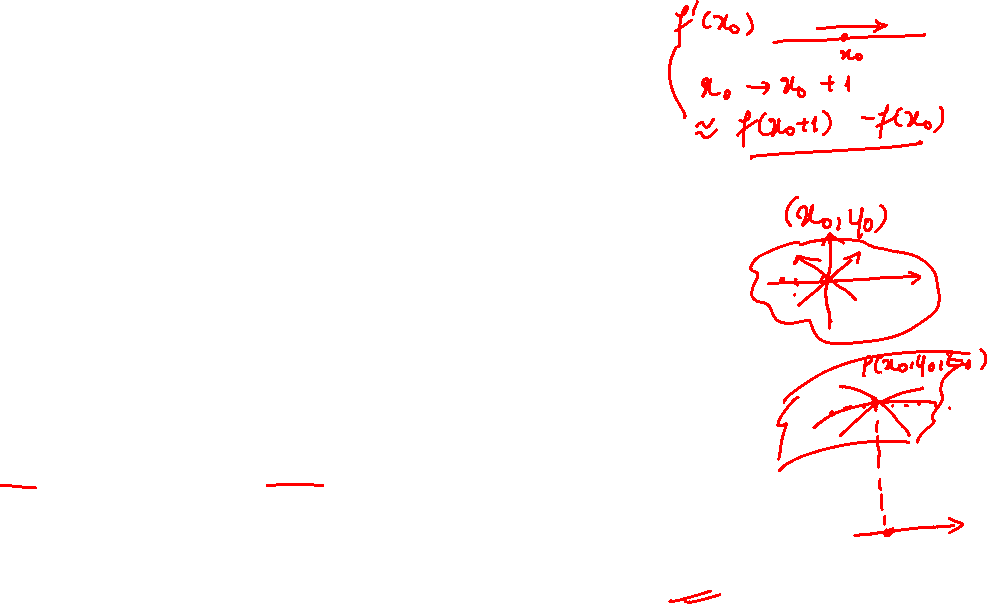 f'(x₀)
x₀
x₀ → x₀ + 1
≈ f(x₀+1) - f(x₀)
(x₀, y₀)
P(x₀, y₀, z₀)